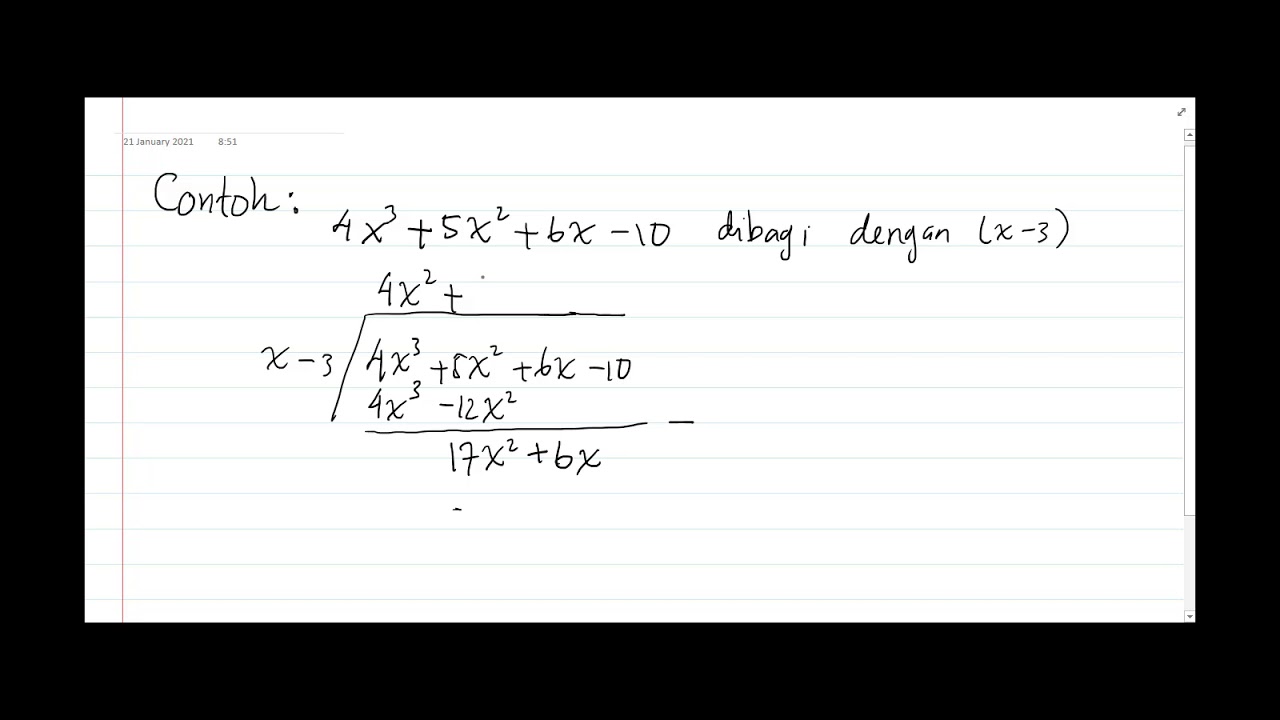 21 January 2021 8:51
Contoh:
4x³ + 5x² + 6x - 10 dibagi dengan (x-3)
4x² +
x - 3 4x³ + 5x² + 6x - 10
4x³ - 12x²
-
17x² + 6x
-